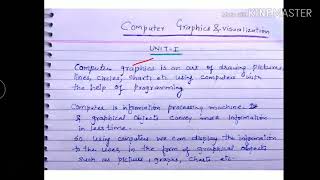 Made with KINEMASTER
Computer Graphics & visualization
UNIT-I
Computer graphics is an art of drawing pictures,
lines, circles, charts etc using computers with
the help of programming
Computer is information processing machine. It
& graphical objects convey more information
in less time.
So using computers we can display the information
to the user, in the form of graphical objects
such as picture, graphs, charts etc.